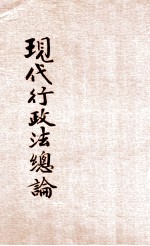 現代行政法總論